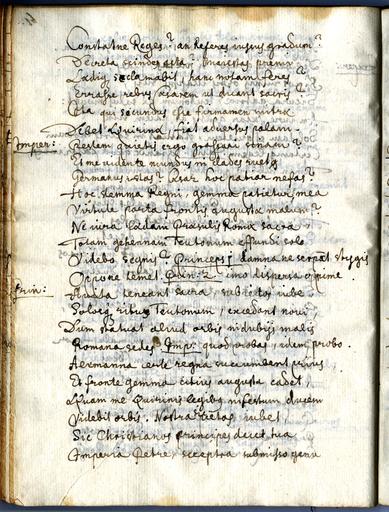 Constatne Reges? an Referes iussus gradum?
Decreta scindes ista: Maiestas premi
Ladis, reclamabit, hanc notam feres?
Errasse rebus Cæsarem ut dicant sacris?
Ceta qui secundus esse firmamen mitra
Debet Quirina, fiat adversus palam.
Imper: Pestem quietis ergo grassari sinam?
Et me vidente mundus in clades ruet?
Germanus istas? Cæsar hoc patiar nefas?
Hoc stemma Regni, gemma patietur mea
Virtute parta frontis augusta malum?
Ne iura lædam Præsulis Romæ sacra
Totam gehennam Teutonum effundi solo
Videbo segnis? Princeps 1 damna ne serpat Stygis
Oppone temet. Prin: 2 imo dispersa opprime
Prin: Avita teneant sacra, subiectos iube
Solosq ritus Teutonum, excedant novi;
Dum statuat aliud orbis in dubijs malis
Romana sedes. Imp: quod probas, idem probo.
Alemanna certe regna succumbent prius
Et fronte gemma citius augusta cadet,
Quam me Quirinis legibus infestum ducem
Videbit orbis. Nostra Pietas iubet,
Sic Christianos principes decet tua
Imperia Petre, sceptra submisso genu